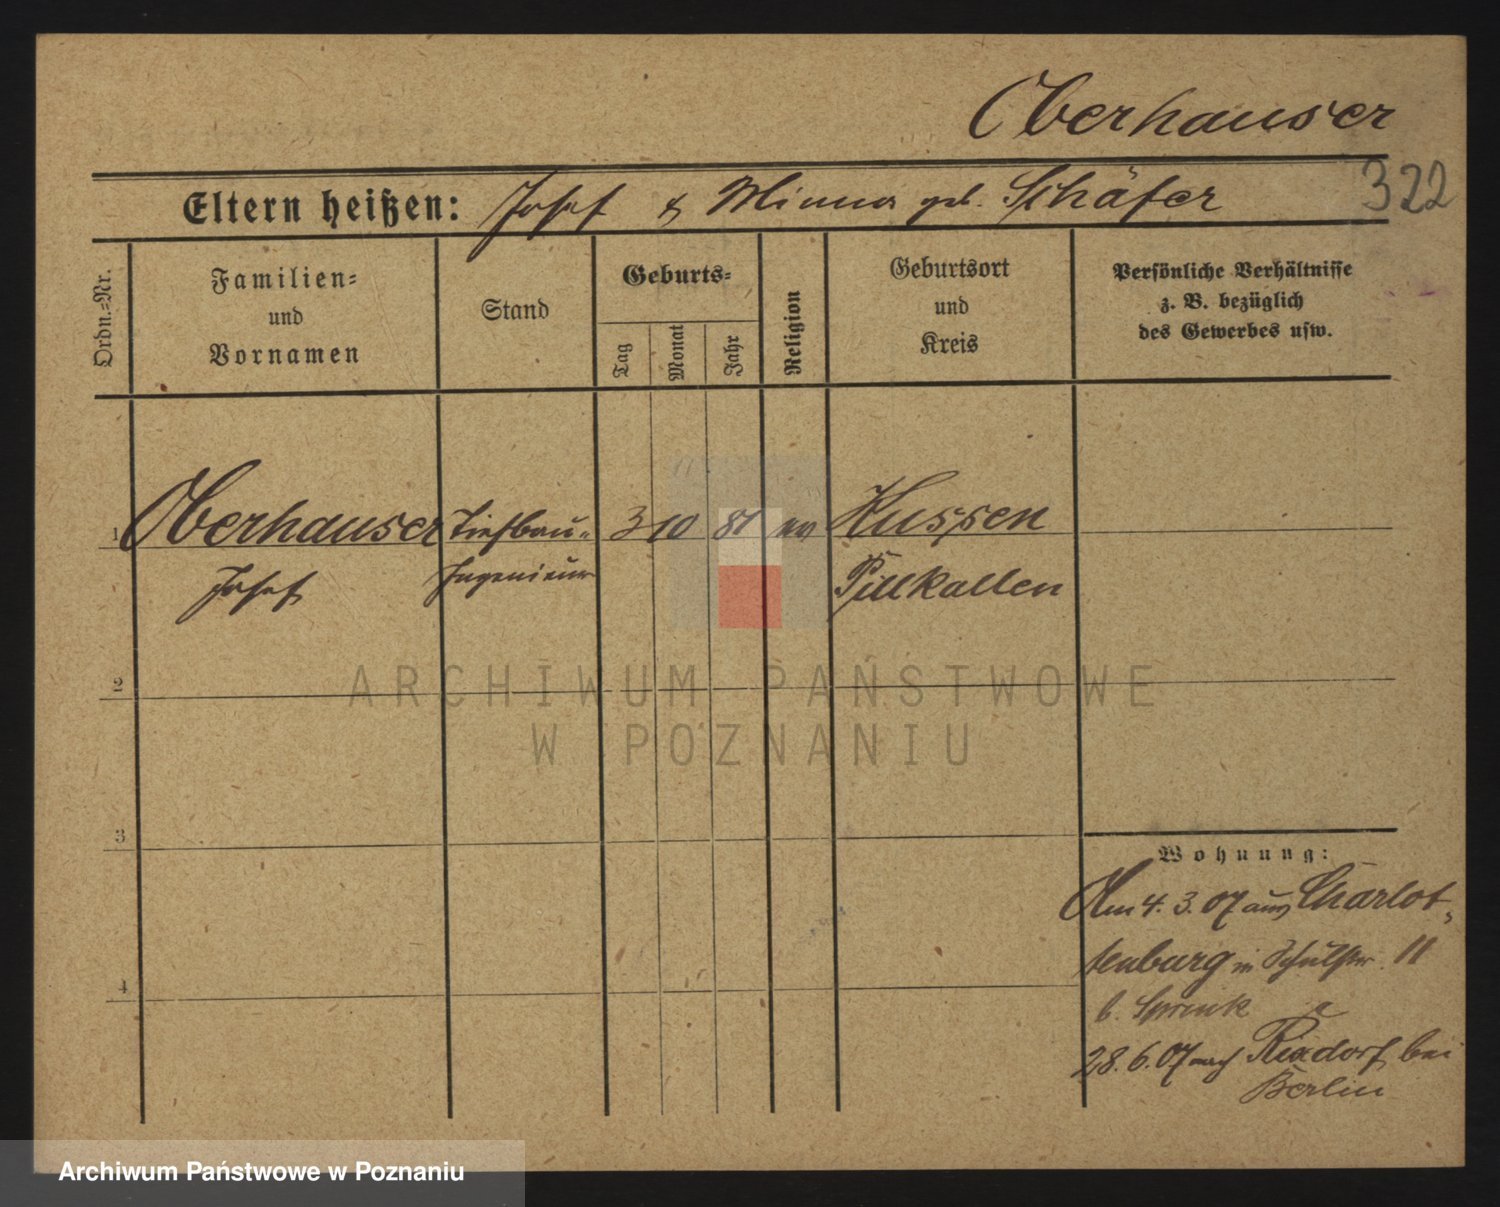 Oberhauser
322
Eltern heißen: Josef & Minna geb. Schäfer
Ordn.-Nr.
Familien-
und
Vornamen
Stand
Geburts-
Tag
Monat
Jahr
Religion
Geburtsort
und
Kreis
Persönliche Verhältnisse
z. B. bezüglich
des Gewerbes usw.
1 Oberhauser Tiefbau- 3 10 81 ev Kussen
Josef Ingenieur Pillkallen
2
3
4
Wohnung:
Am 4. 3. 07 aus Charlot-
tenburg in Schulstr. 11
b.
28. 6. 07 nach Rixdorf bei
Berlin
ARCHIWUM PAŃSTWOWE
W POZNANIU
Archiwum Państwowe w Poznaniu